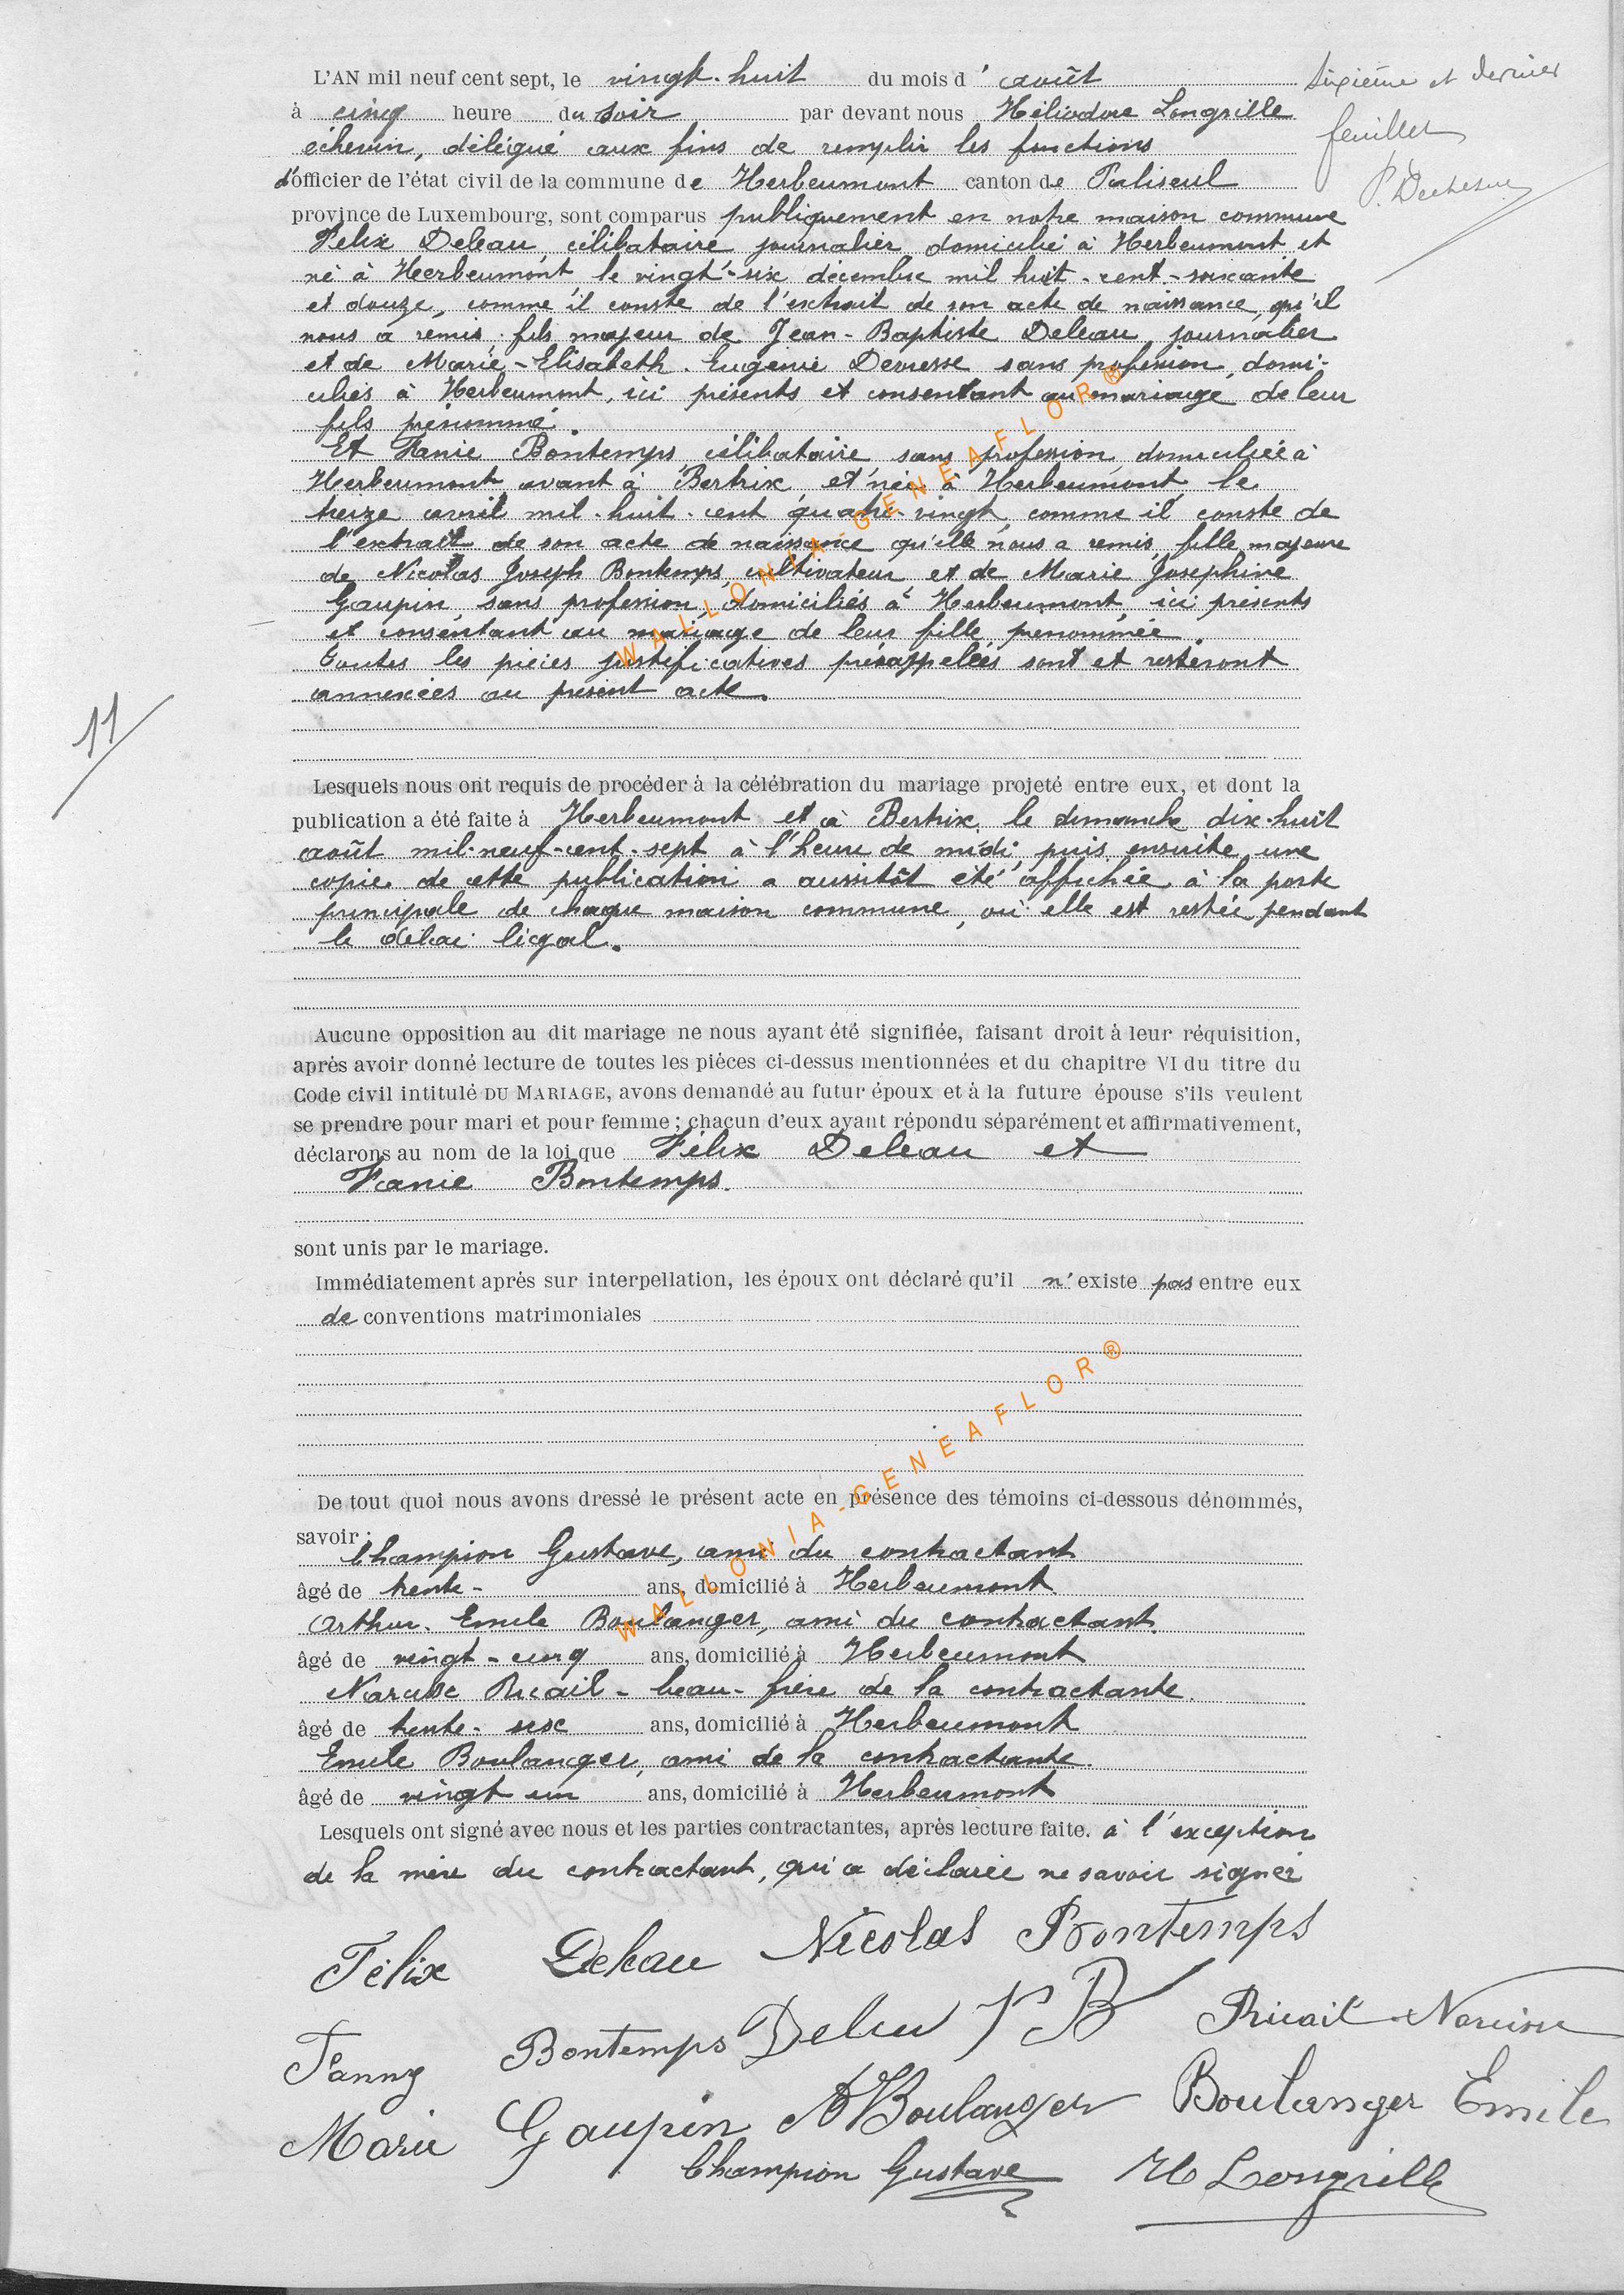 L'AN mil neuf cent sept, le vingt-huit du mois d'août
à cinq heure du soir par devant nous Héliodore Longrille
échevin, délégué aux fins de remplir les fonctions
d'officier de l'état civil de la commune de Herbeumont canton de Paliseul
province de Luxembourg, sont comparus publiquement en notre maison commune
Félix Deleau, célibataire journalier, domicilié à Herbeumont et
né à Herbeumont le vingt-six décembre mil huit-cent-soixante
et douze, comme il conste de l'extrait de son acte de naissance, qu'il
nous a remis, fils majeur de Jean-Baptiste Deleau, journalier
et de Marie-Elisabeth-Eugénie sans profession, domi-
ciliés à Herbeumont, ici présents et consentant au mariage de leur
fils prénommé.
Et Fanie Bontemps, célibataire sans profession, domiciliée à
Herbeumont avant à Bertrix et née à Herbeumont le
treize avril mil-huit-cent quatre-vingt, comme il conste de
l'extrait de son acte de naissance qu'elle nous a remis, fille majeure
de Nicolas Joseph Bontemps, cultivateur et de Marie Joséphine
Gaupin sans profession, domiciliés à Herbeumont, ici présents
et consentant au mariage de leur fille prénommée.
Toutes les pièces justificatives prérappelées sont et resteront
annexées au présent acte.
Lesquels nous ont requis de procéder à la célébration du mariage projeté entre eux, et dont la
publication a été faite à Herbeumont et à Bertrix, le dimanche dix-huit
août mil-neuf-cent-sept à l'heure de midi, puis ensuite une
copie de cette publication a aussitôt été affichée à la porte
principale de chaque maison commune, où elle est restée pendant
le délai légal.
Aucune opposition au dit mariage ne nous ayant été signifiée, faisant droit à leur réquisition,
après avoir donné lecture de toutes les pièces ci-dessus mentionnées et du chapitre VI du titre du
Code civil intitulé DU MARIAGE, avons demandé au futur époux et à la future épouse s'ils veulent
se prendre pour mari et pour femme ; chacun d'eux ayant répondu séparément et affirmativement,
déclarons au nom de la loi que Félix Deleau et
Fanie Bontemps.
sont unis par le mariage.
Immédiatement après sur interpellation, les époux ont déclaré qu'il n'existe pas entre eux
de conventions matrimoniales
De tout quoi nous avons dressé le présent acte en présence des témoins ci-dessous dénommés,
savoir :
Champion Gustave, ami du contractant
âgé de trente- ans, domicilié à Herbeumont
Arthur-Emile Boulanger, ami du contractant.
âgé de vingt-cinq ans, domicilié à Herbeumont
Narcisse Pricail - beau-frère de la contractante.
âgé de trente-six ans, domicilié à Herbeumont
Emile Boulanger, ami de la contractante.
âgé de vingt un ans, domicilié à Herbeumont
Lesquels ont signé avec nous et les parties contractantes, après lecture faite. à l'exception
de la mère du contractant, qui a déclaré ne savoir signer
Félix Deleau Nicolas Bontemps
Fanny Bontemps Deleau J B Pricail Narcisse
Marie Gaupin A Boulanger Boulanger Emile
Champion Gustave H Longrille
Sixième et dernier
feuillet
P. Duchesne
11
WALLONIA-GENEAFLOR®
WALLONIA-GENEAFLOR®